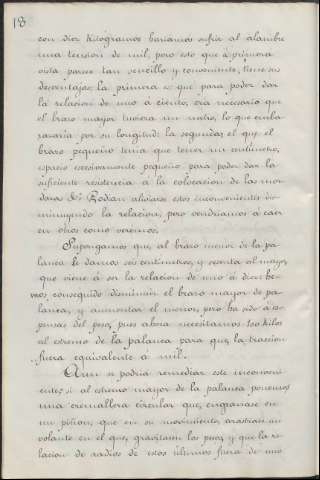 18
con diez Kilogramos haríamos sufrir al alambre
una tension de mil, pero esto que á primera
vista parece tan sencillo y conveniente, tiene sus
desventajas; la primera es que para poder dar
la relacion de uno á ciento, era necesario que
el brazo mayor tuviera un metro, lo que emba
razaria por su longitud: la segunda es el que, el
brazo pequeño tenia que tener un centimetro,
espacio excesivamente pequeño para poder dar la
suficiente resistencia á la colocacion de las mor
dazas &ª Podian aliviarse estos inconvenientes dis
minuyendo la relacion, pero vendriamos á caer
en otros como veremos.
Supongamos que, al brazo menor de la pa
lanca le damos seis centimetros, y sesenta al mayor,
que viene á ser la relacion de uno á diez he
mos conseguido disminuir el brazo mayor de pa
lanca, y aumentar el menor, pero ha sido á es
pensas del peso, pues ahora necesitamos 100 kilos
al estremo de la palanca para que, la traccion
fuera equivalente á mil.
Aun se podria remediar este inconveni
ente; si al estremo mayor de la palanca ponemos
una cremallera circular que, engranase en
un piñon, que en su movimiento, arrastrase un
volante en el que, gravitasen los pesos, y que la re
lacion de radios de estos ultimos fuera de uno